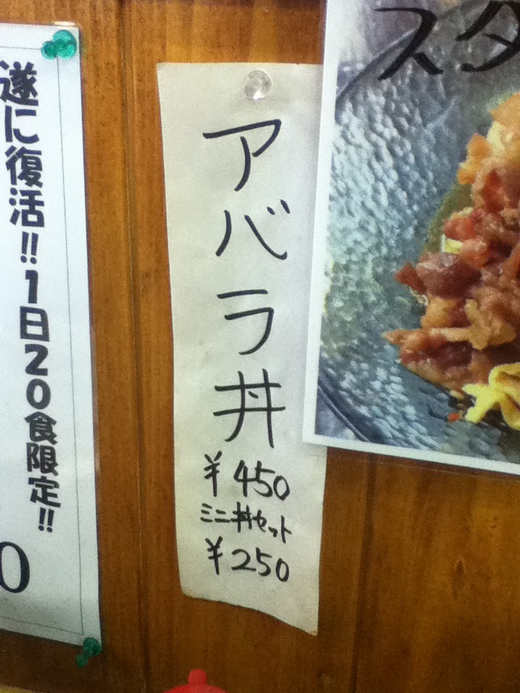 遂に復活!!1日20食限定!!
0
アバラ丼
¥450
ミニ丼セット
¥250
スタ